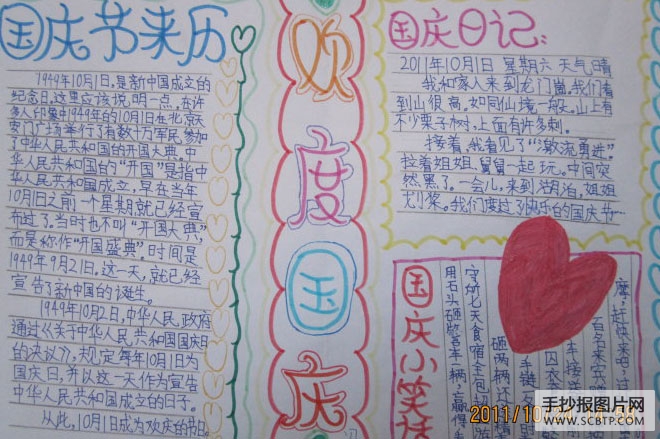 国庆节来历
1949年10月1日,是新中国成立的
纪念日。这里应该说明一点,在许
多人印象中1949年的10月1日在北京天
安门广场举行了有数十万军民参加
了中华人民共和国的开国大典。中
华人民共和国的“开国”是指中
华人民共和国成立,早在当年
10月1日之前一个星期就已经宣
布过了。当时也不叫“开国大典”,
而是称作“开国盛典”。时间是
1949年9月21日。这一天,就已经
宣告了新中国的诞生。
1949年10月2日,中华人民政府
通过《关于中华人民共和国国庆日
的决议》,规定每年10月1日为
国庆日,并以这一天作为宣告
中华人民共和国成立的日子。
从此,10月1日成为欢庆的节日。
欢度国庆
国庆日记:
2011年10月1日 星期六 天气晴
我和家人来到龙门崮,我们看
到山很高,如同仙境一般。山上有
不少栗子树,上面有许多刺。
接着,我看见了“激流勇进”。
拉着姐姐,舅舅一起玩。中间突
然黑了。一会儿,来到湖泊,姐姐
划桨。我们度过了快乐的国庆节…
国庆小笑话
百名来宾
安娇七天食宿全包
用石头砸警车一辆,赢得
2011/10
手抄报图片网
WWW.SCBTP.COM